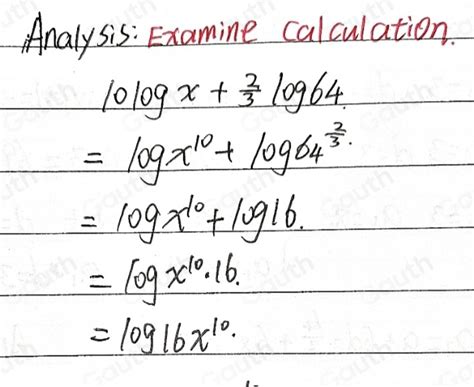 Analysis: Examine calculation.
10 log x + 2/3 log 64.
= log x¹⁰ + log 64^(2/3).
= log x¹⁰ + log 16.
= log x¹⁰ · 16.
= log 16x¹⁰.